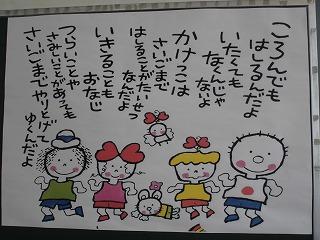 ころんでも
はしるんだよ
いたくても
なくんじゃ
ないよ
かけっこは
さいごまで
はしることがたいせつ
なんだよ
いきることも
おなじ
つらいことや
さみしいことがあっても
さいごまでやりとげ
ゆくんだよ